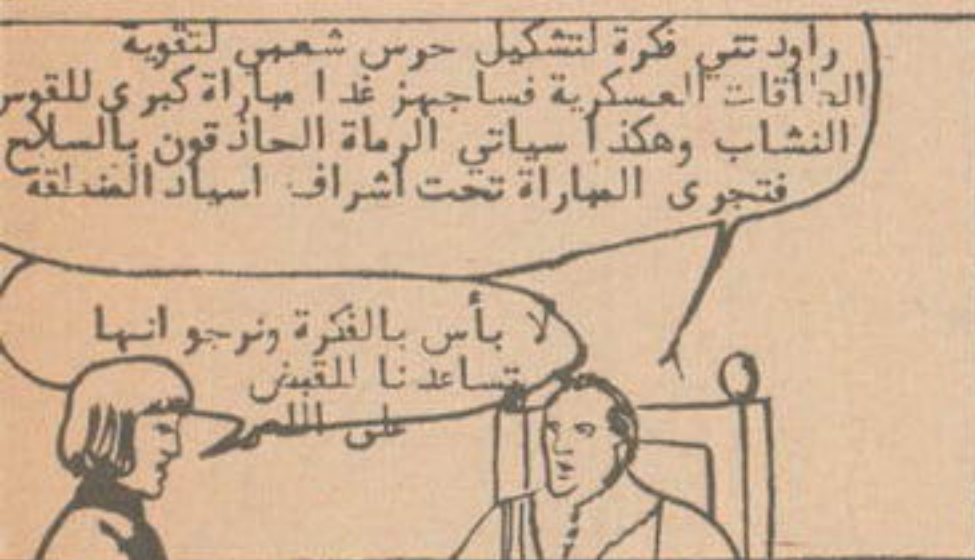 راودتني فكرة لتشكيل حرس شعبي لتقوية
الطاقات العسكرية فساجهز غدا مباراة كبرى للقوس
النشاب وهكذا سياتي الرماة الحاذقون بالسلاح
فتجرى المباراة تحت اشراف اسياد المنطقة
لا بأس بالفكرة ونرجو انها
تساعدنا للقبض
على اللص